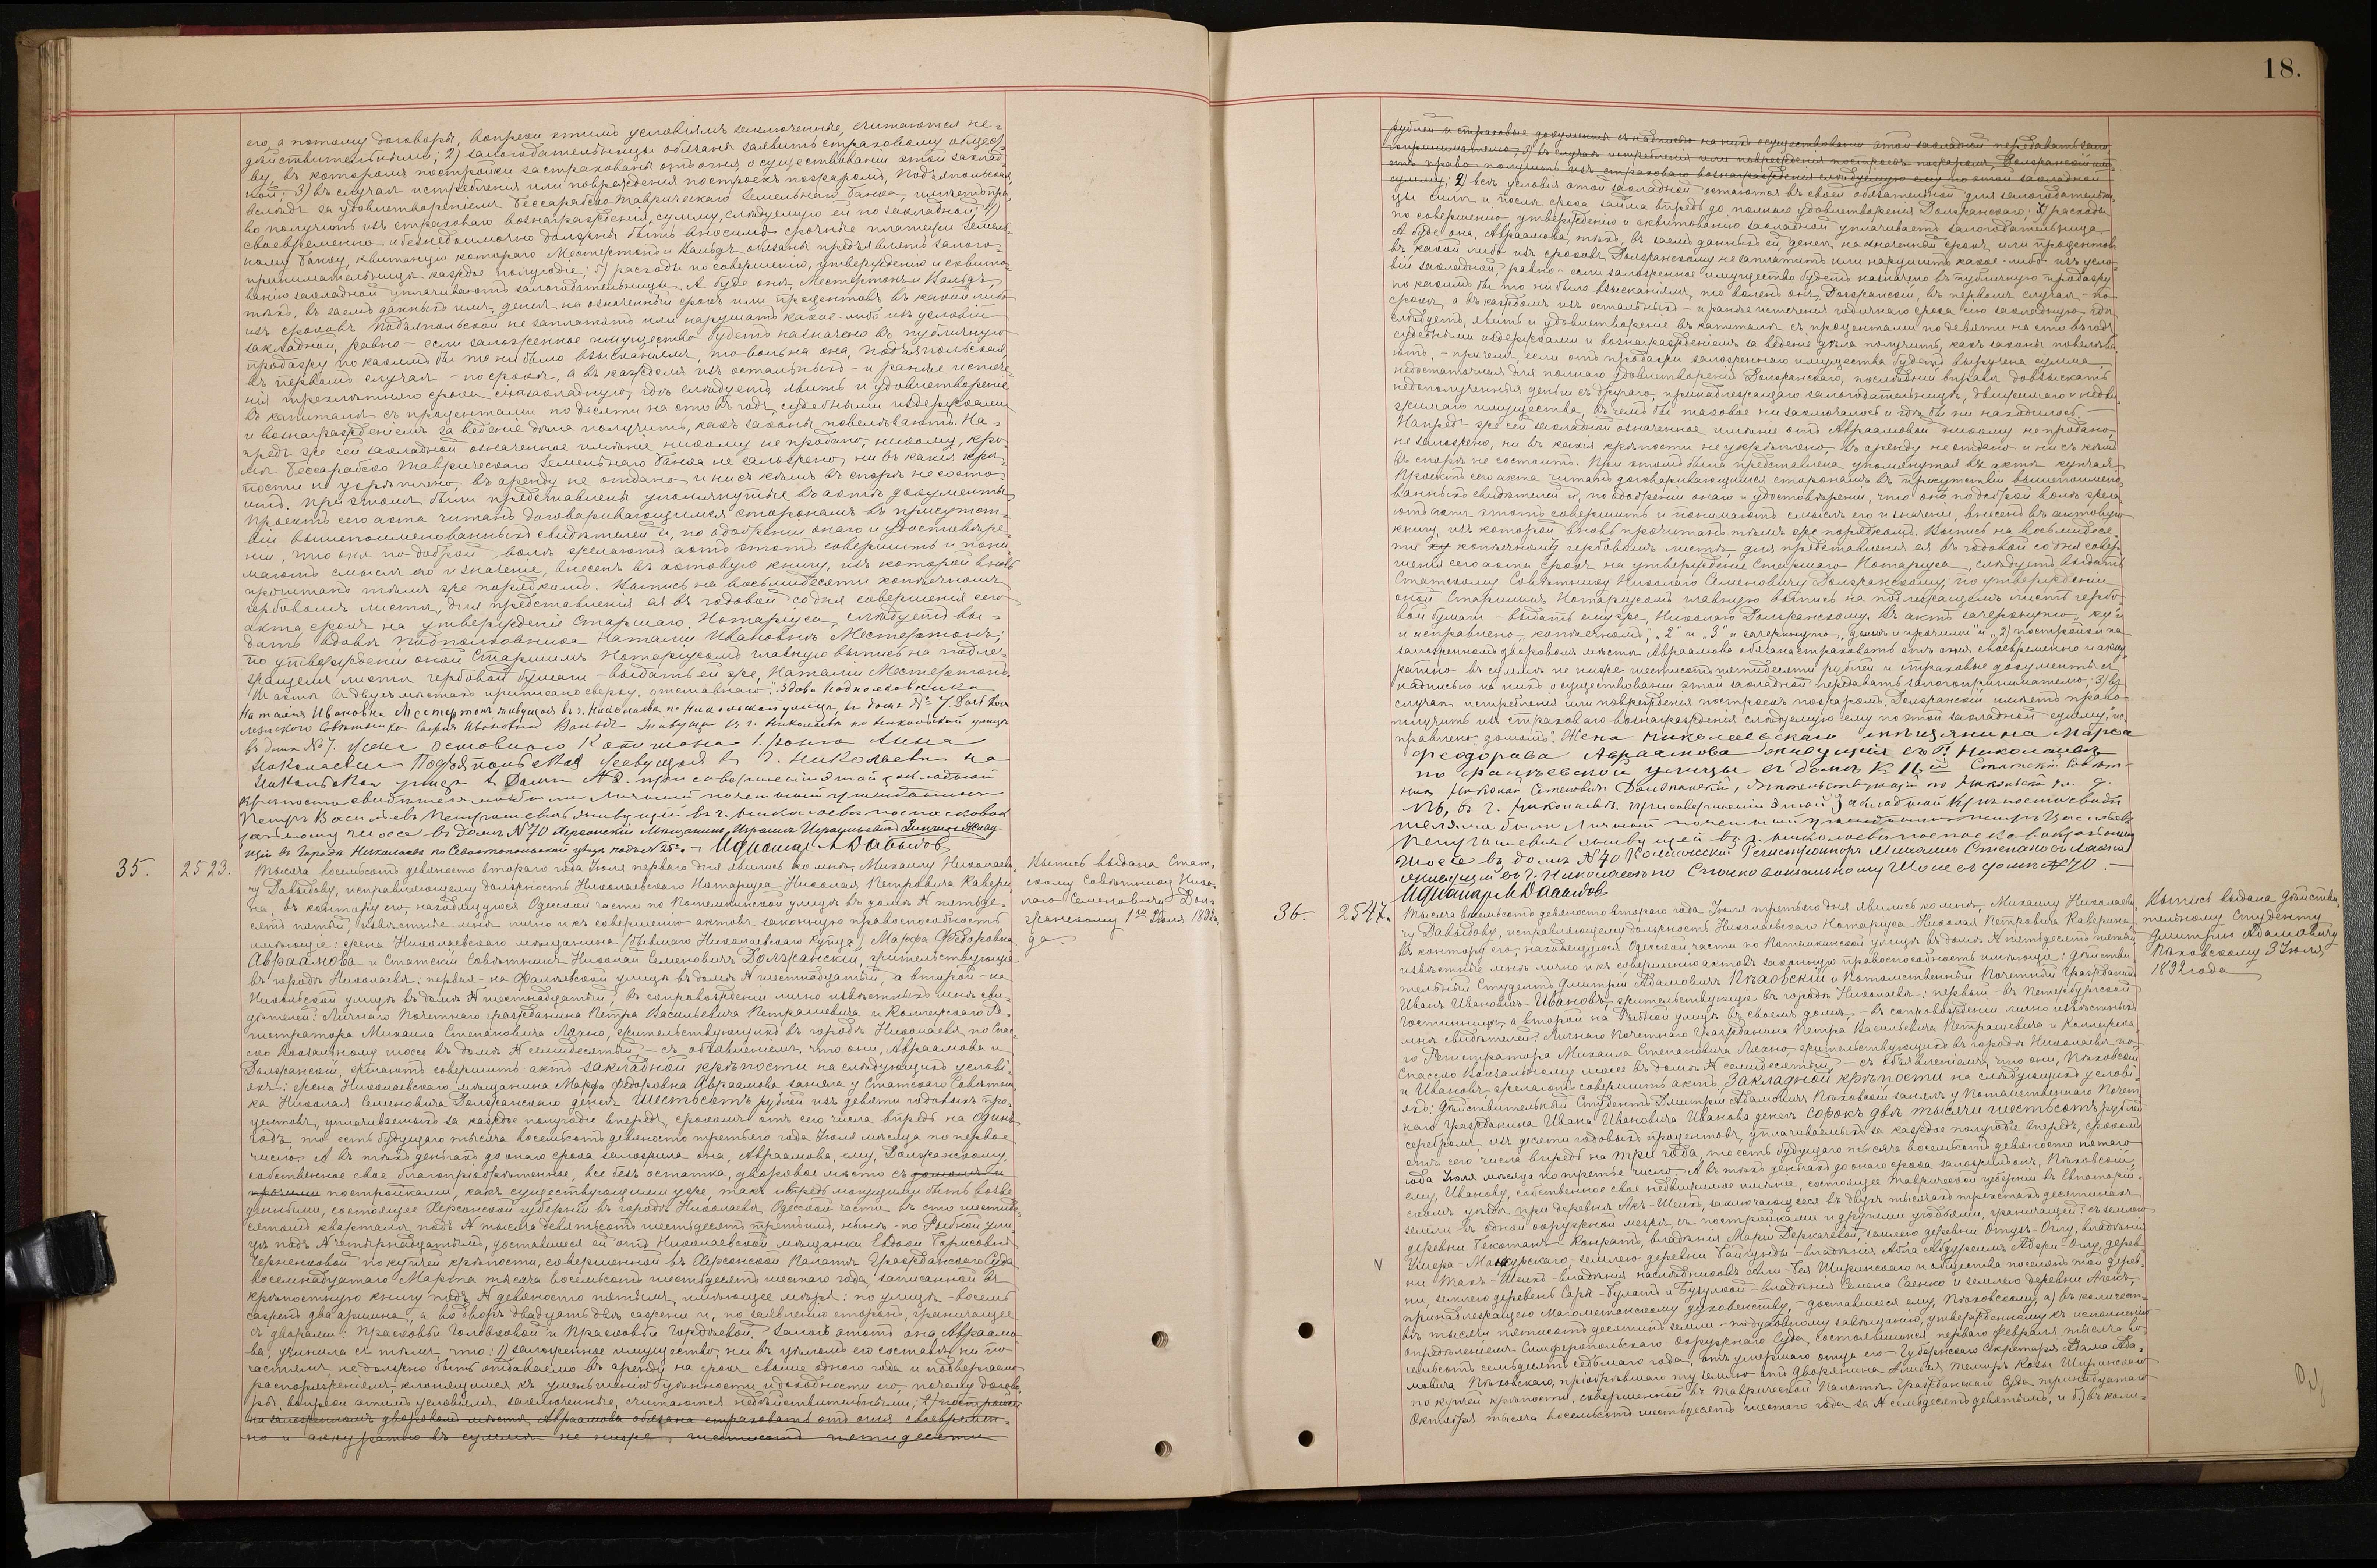 его, а потому договоры, вопреки этимъ условіямъ заключенные, считаются не-
дѣйствительными; 2) залогодательницы обязаны заявить страховому общест-
ву, въ которомъ постройки застрахованы отъ огня, о существованіи этой заклад-
ной; 3) въ случаѣ истребленія или поврежденія построекъ пожаромъ, Подъяпольская,
вслѣдъ за удовлетвореніемъ Бессарабско-Таврическаго Земельнаго Банка, имѣетъ пра-
во получить изъ страховаго вознагражденія, сумму, слѣдуемую ей по закладной; 4)
своевременно и безнедоимочно должны быть вносимы срочные платежи Земель-
ному Банку, квитанціи котораго Местертонъ и Вальдъ обязаны предъявлять залого-
принимательницѣ каждое полугодіе; 5) расходы по совершенію, утвержденію и сквито-
ванію закладной уплачиваютъ залогодательницы. А буде онѣ, Местертонъ и Вальдъ,
тѣхъ, въ заемъ данныхъ имъ, денегъ на означенный срокъ или процентовъ въ какой либо
изъ сроковъ Подъяпольской не заплатятъ или нарушатъ какое-либо изъ условій
закладной, равно - если заложенное имущество будетъ назначено въ публичную
продажу по какимъ бы то ни было взысканіямъ, то вольна она, Подъяпольская,
въ первомъ случаѣ - по срокѣ, а въ каждомъ изъ остальныхъ - и ранѣе истече-
нія трехлѣтняго срока сію закладную, гдѣ слѣдуетъ, явить и удовлетвореніе
въ капиталѣ съ процентами по десяти на сто въ годъ, судебными издержками
и вознагражденіемъ за веденіе дѣла получить, какъ законы повелѣваютъ. На-
предъ же сей закладной означенное имѣніе никому не продано, никому, кро-
мѣ Бессарабско Таврическаго Земельнаго Банка не заложено, ни въ какія крѣ-
пости не укрѣплено, въ аренду не отдано и ни съ кѣмъ въ спорѣ не состо-
итъ. При этомъ были представлены упомянутые въ актѣ документы.
Проектъ сего акта читанъ договаривающимся сторонамъ въ присутст-
віи вышепоименованныхъ свидѣтелей и, по одобреніи онаго и удостовѣре-
ніи, что онѣ по доброй волѣ желаютъ актъ этотъ совершить и пони-
маютъ смыслъ его и значеніе, внесенъ въ актовую книгу, изъ которой вновь
прочитанъ тѣмъ же порядкомъ. Выпись на восьмидесяти копѣечномъ
гербовомъ листѣ, для представленія ея въ годовой со дня совершенія сего
акта срокъ на утвержденіе Старшаго Нотаріуса, слѣдуетъ вы-
дать вдовѣ Подполковника Наталіи Ивановнѣ Местертонъ;
по утвержденіи оной Старшимъ Нотаріусомъ главную выпись на подле-
жащемъ листѣ гербовой бумаги - выдать ей же, Наталіи Местертонъ.
Въ актѣ въ двухъ мѣстахъ приписано сверху: отставнаго. Вдова Подполковника
Наталія Ивановна Местертонъ живущая въ г. Николаевѣ по Никольской улицѣ, въ домѣ № 7.
въ домѣ № 7. Жена отставного Капитана 1. ранга Анна
Николаевна Подъяпольская живущая въ г. Николаевѣ по
Никольской улицѣ въ домѣ при совершеніи этой закладной
крѣпости свидѣтелями были Личный почетный гражданинъ
Петръ Васильевъ Петрашевичъ живущій въ г. Николаевѣ по Спасско Вок-
зальному шоссе въ домѣ № 70
щій въ Городѣ Николаевѣ по Севастопольской улицѣ подъ № 25 - И.д. нотар. М Давыдов
35. 2523. Тысяча восемьсотъ девяносто втораго года Іюля перваго дня явились ко мнѣ, Михаилу Николаеви-
чу Давыдову, исправляющему должность Николаевскаго Нотаріуса Николая Петровича Кавери-
на, въ контору его, находящуюся Одесской части по Потемкинской улицѣ въ домѣ № пятьде-
сятъ пятый, извѣстные мнѣ лично и къ совершенію актовъ законную правоспособность
имѣющіе: жена Николаевскаго мѣщанина (бывшаго Николаевскаго Купца) Марфа Ѳедоровна
Авраамова и Статскій Совѣтникъ Николай Семеновичъ Должанскій, жительствующіе
въ городѣ Николаевѣ: первая - на Фалѣевской улицѣ въ домѣ № шестнадцатый, а второй - на
Никольской улицѣ въ домѣ № шестнадцатый, въ сопровожденіи лично извѣстныхъ мнѣ сви-
дѣтелей: Личнаго Почетнаго гражданина Петра Васильевича Петрашевича и Коллежскаго Ре-
гистратора Михаила Степановича Ляхно, жительствующихъ въ городѣ Николаевѣ, по Спас-
ско Вокзальному шоссе въ домѣ № семидесятый, - съ объявленіемъ, что они, Авраамова и
Должанскій, желаютъ совершить актъ закладной крѣпости на слѣдующихъ услові-
яхъ: жена Николаевскаго мѣщанина Марфа Ѳедоровна Авраамова заняла у Статскаго Совѣтни-
ка Николая Семеновича Должанскаго денегъ шестьсотъ рублей изъ девяти годовыхъ про-
центовъ, уплачиваемыхъ за каждое полугодіе впередъ, срокомъ отъ сего числа впредь на одинъ
годъ, то есть будущаго тысяча восемьсотъ девяносто третьяго года Іюля мѣсяца по первое
число. А въ тѣхъ деньгахъ до онаго срока заложила она, Авраамова, ему, Должанскому,
собственное свое благопріобрѣтенное, все безъ остатка, дворовое мѣсто съ домомъ и
прочими постройками, какъ существующими уже, такъ и впредь могущими быть возве-
денными, состоящее Херсонской губерніи въ городѣ Николаевѣ, Одесской части въ сто шестиде-
сятомъ кварталѣ подъ № тысяча девятьсотъ шестьдесятъ третьимъ, нынѣ - по Рыбной ули-
цѣ подъ № четырнадцатымъ, доставшееся ей отъ Николаевской мѣщанки Евдокіи Борисовны
Черненковой по купчей крѣпости, совершенной въ Херсонской Палатѣ Гражданскаго Суда
восемнадцатаго Марта тысяча восемьсотъ шестьдесятъ шестаго года, записанной въ
крѣпостную книгу подъ № девяносто пятымъ, имѣющее мѣры: по улицѣ - восемь
сажень два аршина, а во дворъ двадцать двѣ сажени и, по заявленію сторонъ, граничащее
съ дворами: Прасковьи Головковой и Прасковьи Гордѣевой. Залогъ этотъ она, Авраамо-
ва, учинила съ тѣмъ, что: 1) заложенное имущество, ни въ цѣломъ его составѣ, ни по
частямъ, не должно быть отдаваемо въ аренду на срокъ свыше одного года и подвергаемо
распоряженіямъ, клонящимся къ уменьшенію цѣнности и доходности его, почему догово-
ры, вопреки этимъ условіямъ заключенные, считаются недѣйствительными; 2) постройки
на заложенномъ дворовомъ мѣстѣ, Авраамова обязана страховать отъ огня своевремен-
но и аккуратно въ суммѣ не ниже шестисотъ пятидесяти
Выпись выдана Стат-
скому Совѣтнику Нико-
лаю Семеновичу Дол-
жанскому 1го Іюля 1892 го-
да.
18.
рублей и страховые документы съ надписью на нихъ о существованіи этой закладной передавать зало-
гопринимателю; 3) въ случаѣ истребленія или поврежденія построекъ пожаромъ, Должанскій имѣ-
етъ право получить изъ страховаго вознагражденія слѣдуемую ему по этой закладной
сумму; 2) всѣ условія этой закладной остаются въ своей обязательной для залогодательни-
цы силѣ и послѣ срока займа впредь до полнаго удовлетворенія Должанскаго; 3) расходы
по совершенію, утвержденію и сквитованію закладной уплачиваетъ залогодательница.
А буде она, Авраамова, тѣхъ, въ заемъ данныхъ ей, денегъ на означенный срокъ или процентовъ
въ какой либо изъ сроковъ Должанскому не заплатитъ или нарушитъ какое-либо изъ усло-
вій закладной, равно - если заложенное имущество будетъ назначено въ публичную продажу
по какимъ бы то ни было взысканіямъ, то воленъ онъ, Должанскій, въ первомъ случаѣ - по
срокѣ, а въ каждомъ изъ остальныхъ - и ранѣе истеченія годичнаго срока сію закладную, гдѣ
слѣдуетъ, явить и удовлетвореніе въ капиталѣ съ процентами по девяти на сто въ годъ,
судебными издержками и вознагражденіемъ за веденіе дѣла получить, какъ законы повелѣва-
ютъ, - причемъ, если отъ продажи заложеннаго имущества будетъ выручена сумма,
недостаточная для полнаго удовлетворенія Должанскаго, послѣдній вправѣ довзыскать
недополученныя деньги съ другаго, принадлежащаго залогодательницѣ, движимаго и недви-
жимаго имущества, въ чемъ бы таковое ни заключалось и гдѣ бы ни находилось. -
Напредъ же сей закладной означенное имѣніе отъ Авраамовой никому не продано,
не заложено, ни въ какія крѣпости не укрѣплено, въ аренду не отдано и ни съ кѣмъ
въ спорѣ не состоитъ. При этомъ была представлена упомянутая въ актѣ купчая.
Проектъ сего акта читанъ договаривающимся сторонамъ въ присутствіи вышепоимено-
ванныхъ свидѣтелей и, по одобреніи онаго и удостовѣреніи, что онѣ по доброй волѣ жела-
ютъ актъ этотъ совершить и понимаютъ смыслъ его и значеніе, внесенъ въ актовую
книгу, изъ которой вновь прочитанъ тѣмъ же порядкомъ. Выпись на восьмидеся-
ти копѣечномъ гербовомъ листѣ, для представленія ея въ годовой со дня совер-
шенія сего акта срокъ на утвержденіе Старшаго Нотаріуса, слѣдуетъ выдать
Статскому Совѣтнику Николаю Семеновичу Должанскому; по утвержденіи
оной Старшимъ Нотаріусомъ главную выпись на подлежащемъ листѣ гербо-
вой бумаги - выдать ему же, Николаю Должанскому. Въ актѣ зачеркнуто
и исправлено „копѣечномъ", „2" и „3" и зачеркнуто „домомъ и прочими" и „2) постройки на
заложенномъ дворовомъ мѣстѣ Авраамова обязана страховать отъ огня своевременно и акку-
ратно въ суммѣ не ниже шестисотъ пятидесяти рублей и страховые документы съ
надписью на нихъ о существованіи этой закладной передавать залогопринимателю; 3) въ
случаѣ истребленія или поврежденія построекъ пожаромъ, Должанскій имѣетъ право
получить изъ страховаго вознагражденія слѣдуемую ему по этой закладной сумму", ис-
правлено „домомъ". Жена Николаевскаго мѣщанина Марфа
Феодорова Авраамова живущая въ г. Николаевѣ
по фалѣевской улицы въ домѣ Статскій Совѣт-
никъ Николай Семеновичъ Должанскій, жительствующій по Никольской ул. д.
№16, въ г. Николаевѣ. При совершеніи этой Закладной Крѣпости свидѣ-
телями были Личный почетный гражданинъ Петръ Васильевъ
Петрашевичъ живущій въ г. Николаевѣ по Спаско Вокзальному
Шоссе въ домѣ №70 Коллежскій Регистраторъ Михаилъ Степановъ Ляхно
живущій въ г. Николаевѣ по Спаско вокзальному Шоссе въ домѣ №70. -
И.д. нотар. М Давыдов
36. 2547. Тысяча восемьсотъ девяносто втораго года Іюля третьяго дня явились ко мнѣ, Михаилу Николаеви-
чу Давыдову, исправляющему должность Николаевскаго Нотаріуса Николая Петровича Каверина,
въ контору его, находящуюся Одесской части по Потемкинской улицѣ въ домѣ № пятьдесятъ пятый,
извѣстные мнѣ лично и къ совершенію актовъ законную правоспособность имѣющіе: Дѣйстви-
тельный Студентъ Дмитрій Адамовичъ Пѣховскій и Потомственный Почетный Гражданинъ
Иванъ Ивановичъ Ивановъ, жительствующіе въ городѣ Николаевѣ: первый - въ Петербургской
Гостинницѣ, а второй на Рыбной улицѣ въ своемъ домѣ, - въ сопровожденіи лично извѣстныхъ
мнѣ свидѣтелей: Личнаго Почетнаго Гражданина Петра Васильевича Петрашевича и Коллежска-
го Регистратора Михаила Степановича Ляхно, жительствующихъ въ городѣ Николаевѣ по
Спасско Вокзальному шоссе въ домѣ № семидесятый, - съ объявленіемъ, что они, Пѣховскій
и Ивановъ, желаютъ совершить актъ закладной крѣпости на слѣдующихъ услові-
яхъ: Дѣйствительный Студентъ Дмитрій Адамовичъ Пѣховскій занялъ у Потомственнаго Почет-
наго Гражданина Ивана Ивановича Иванова денегъ сорокъ двѣ тысячи шестьсотъ рублей
серебромъ изъ десяти годовыхъ процентовъ, уплачиваемыхъ за каждое полугодіе впередъ, срокомъ
отъ сего числа впредь на три года, то есть будущаго тысяча восемьсотъ девяносто пятаго
года Іюля мѣсяца по третье число. А въ тѣхъ деньгахъ до онаго срока заложилъ онъ, Пѣховскій,
ему, Иванову, собственное свое недвижимое имѣніе, состоящее Таврической губерніи въ Евпаторій-
скомъ уѣздѣ при деревнѣ Акъ-Шеихъ, заключающееся въ двухъ тысячахъ трехстахъ десятинахъ
земли въ одной окружной межѣ, съ постройками и другими угодьями, граничащей: съ землею
деревни Бекотанъ Конратъ, владѣнія Маріи Деркачевой, землею деревни Отузъ-Оглу, владѣнія
Умера-Мансурскаго, землею деревни - владѣнія Абла Абдуреимъ Абжи-Оглу, дерев-
ни Такъ-Шеихъ - владѣнія наслѣдниковъ Али-Бея Ширинскаго и общества поселянъ той дерев-
ни, землею деревень Сары-Булатъ и - владѣнія Семена Саенко и землею деревни
принадлежащею магометанскому духовенству, - доставшееся ему, Пѣховскому, а) въ количест-
вѣ тысячи пятисотъ десятинъ земли - по духовному завѣщанію, утвержденному къ исполненію
опредѣленіемъ Симферопольскаго Окружнаго Суда, состоявшимся перваго Февраля тысяча во-
семьсотъ семьдесятъ седьмаго года, отъ умершаго отца его - Губернскаго Секретаря Адама Ада-
мовича Пѣховскаго, пріобрѣвшаго ту землю отъ дворянина Ширинскаго
по купчей крѣпости, совершенной въ Таврической Палатѣ Гражданскаго Суда тринадцатаго
Октября тысяча восемьсотъ шестьдесятъ шестаго года за № семьдесятъ девятымъ, и б) въ коли-
Выпись выдана Дѣйстви-
тельному Студенту
Дмитрію Адамовичу
Пѣховскому 3 Іюля
1892 года